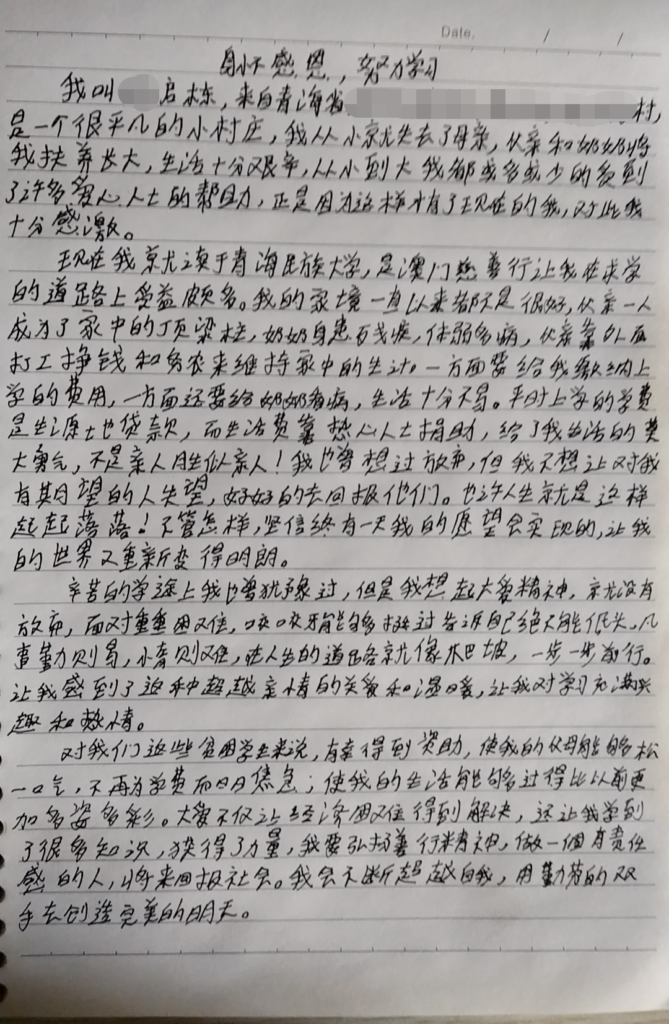 Date.
身怀感恩,努力学习
我叫启栋,来自青海省村,
是一个很平凡的小村庄,我从小就失去了母亲,父亲和奶奶将
我扶养长大,生活十分艰辛,从小到大我都或多或少的受到
了许多爱心人士的帮助,正是因为这样才有了现在的我,对此我
十分感激。
现在我就读于青海民族大学,是澳门慈善行让我在求学
的道路上受益颇多。我的家境一直以来都不是很好,父亲一人
成为了家中的顶梁柱,奶奶身患残疾,体弱多病,父亲靠外面
打工挣钱和务农来维持家中的生计。一方面要给我缴纳上
学的费用,一方面还要给奶奶看病,生活十分不易。平时上学的学费
是生源土也贷款,而生活费靠热心人士捐助,给了我生活的莫
大勇气,不是亲人胜似亲人!我也曾想过放弃,但我不想让对我
有期望的人失望,好好的去回报他们。也许人生就是这样
起起落落!不管怎样,坚信终有一天我的愿望会实现的,让我
的世界又重新变得明朗。
辛苦的学途上我也曾犹豫过,但是我想起大爱精神,就没有
放弃,面对重重困难,咬咬牙能够挺过告诉自己绝不能低头。凡
事勤则易,惰则难,在人生的道路就像爬坡,一步一步前行。
让我感到了这种超越亲情的关爱和温暖,让我对学习充满兴
趣和热情。
对我们这些贫困学生来说,有幸得到资助,使我的父母能够松
一口气,不再为学费而日日焦急;使我的生活能够过得比以前更
加多姿多彩。大爱不仅让经济困难得到解决,还让我学到
了很多知识,获得了力量,我要弘扬善行精神,做一個有责任
感的人,将来回报社会。我会不断超越自我,用勤劳的双
手去创造完美的明天。